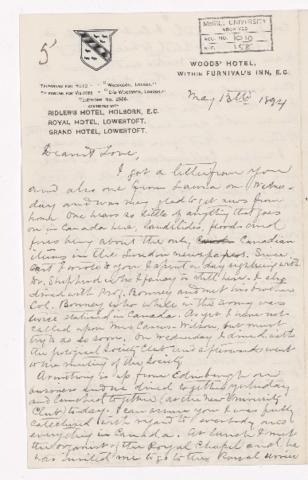 5
McGILL UNIVERSITY
ARCHIVES
ACC. NO. 1010
REF. 158
WOODS' HOTEL,
WITHIN FURNIVAL'S INN, E.C.
RIDLER'S HOTEL, HOLBORN, E.C.
ROYAL HOTEL, LOWESTOFT.
GRAND HOTEL, LOWESTOFT.
May 13th 1894
Dearest Love,
I got a letter from you
and also one from Lawna on Wednes-
day and was very glad to get news from
home. One hears so little of anything that goes
on in Canada here, landslides, floods and
fires being about the only Canadian
items in the London newspapers. Since
last I wrote to you I spent a day sightseeing with
Dr. Shepherd who I fancy is still here. I also
dined with Prof. Bonney and met his brother
Col. Bonney who while in the army was
once stationed in Canada. As yet I have not
called upon Mrs Carus-Wilson, but must
try to do so soon. On Wednesday I dined with
the Geological Society Club and afterwards went
to the meeting of the Society
Armstrong is up from Edinburgh for
and we dined together yesterday
and lunched together (at the New University
Club) today. I can assure you I was fully
catechised with regard to everybody and
everything in Canada. At lunch I met
the organist of the Royal Chapel and he
has invited me to go to the Royal service